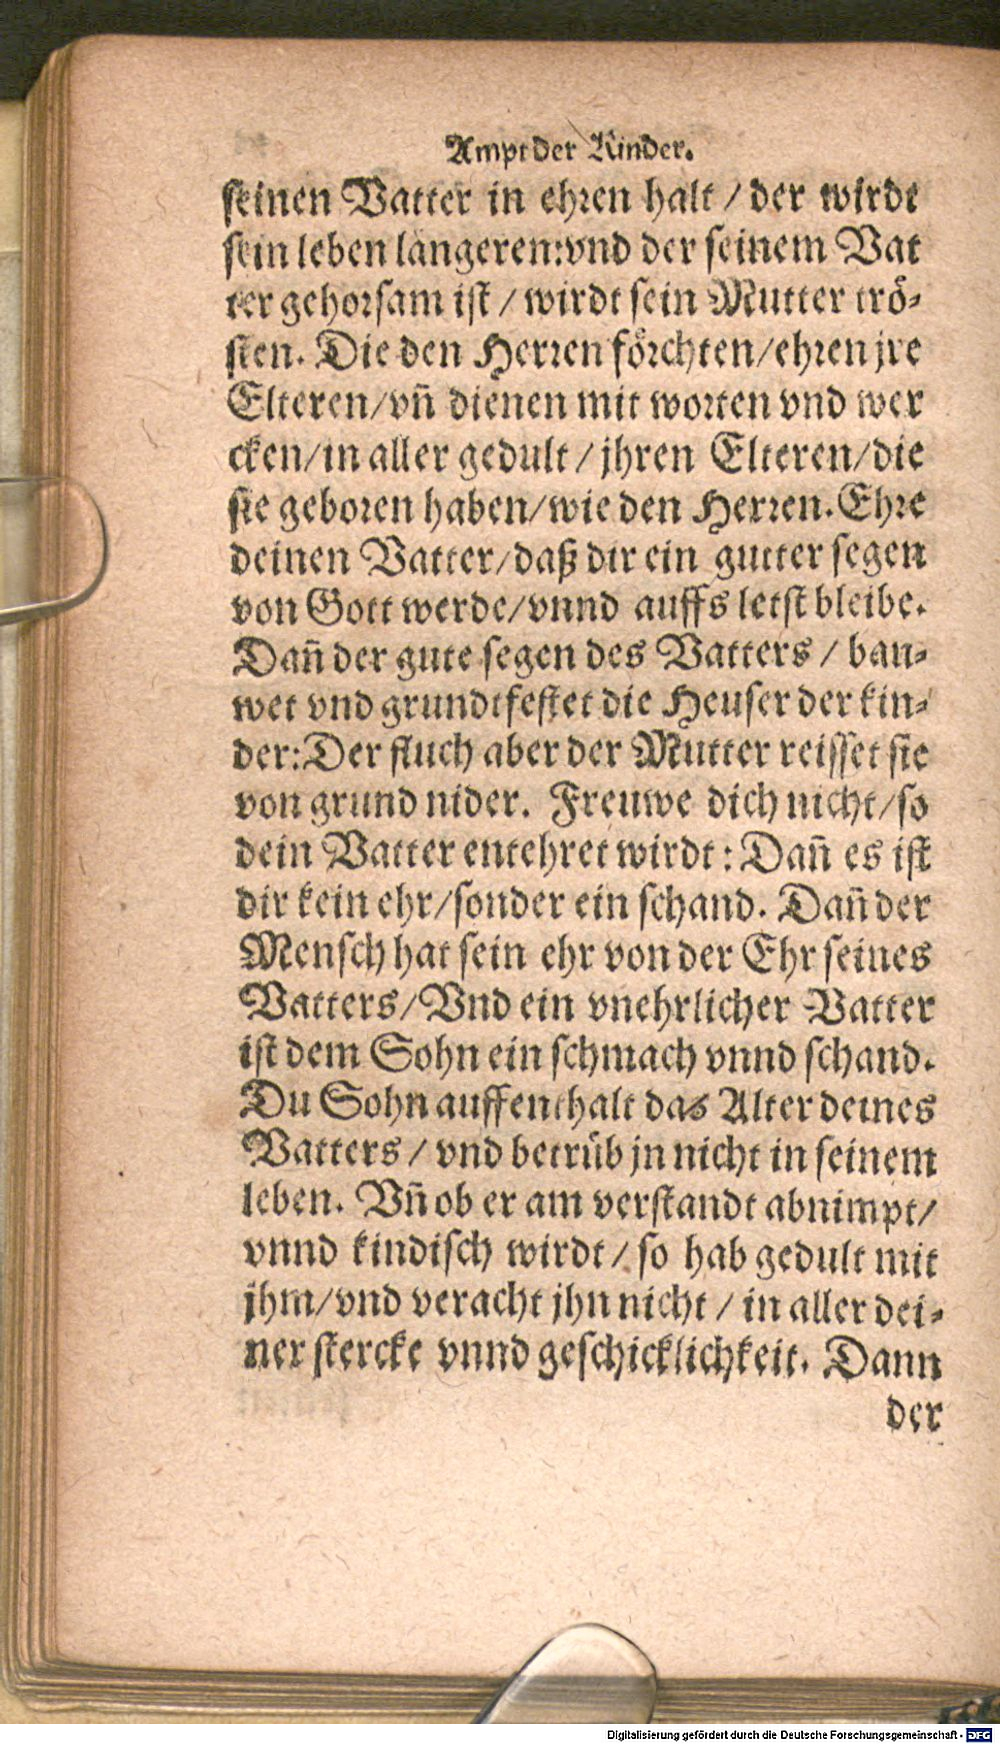 Ampt der Kinder.
seinen Vatter in ehren halt / der wirdt
sein leben langeren: vnd der seinem Vat
ter gehorsam ist / wirdt sein Mutter trö-
sten. Die den Herren förchten/ehren jre
Elteren/vñ dienen mit worten vnd wer
cken/in aller gedult / jhren Elteren/die
sie geboren haben/wie den Herren. Ehre
deinen Vatter/daß dir ein gutter segen
von Gott werde/vnnd auffs letst bleibe.
Dañ der gute segen des Vatters / bau-
wet vnd grundtfestet die Heuser der kin-
der: Der fluch aber der Mutter reisset sie
von grund nider. Freuwe dich nicht/so
dein Vatter entehret wirdt: Dañ es ist
dir kein ehr/sonder ein schand. Dañ der
Mensch hat sein ehr von der Ehr seines
Vatters/Vnd ein vnehrlicher Vatter
ist dem Sohn ein schmach vnnd schand.
Du Sohn auffenthalt das Alter deines
Vatters / vnd betrüb jn nicht in seinem
leben. Vñ ob er am verstandt abnimpt/
vnnd kindisch wirdt / so hab gedult mit
jhm/vnd veracht jhn nicht / in aller dei-
ner stercke vnnd geschicklichkeit. Dann
der
Digitalisierung gefördert durch die Deutsche Forschungsgemeinschaft - DFG